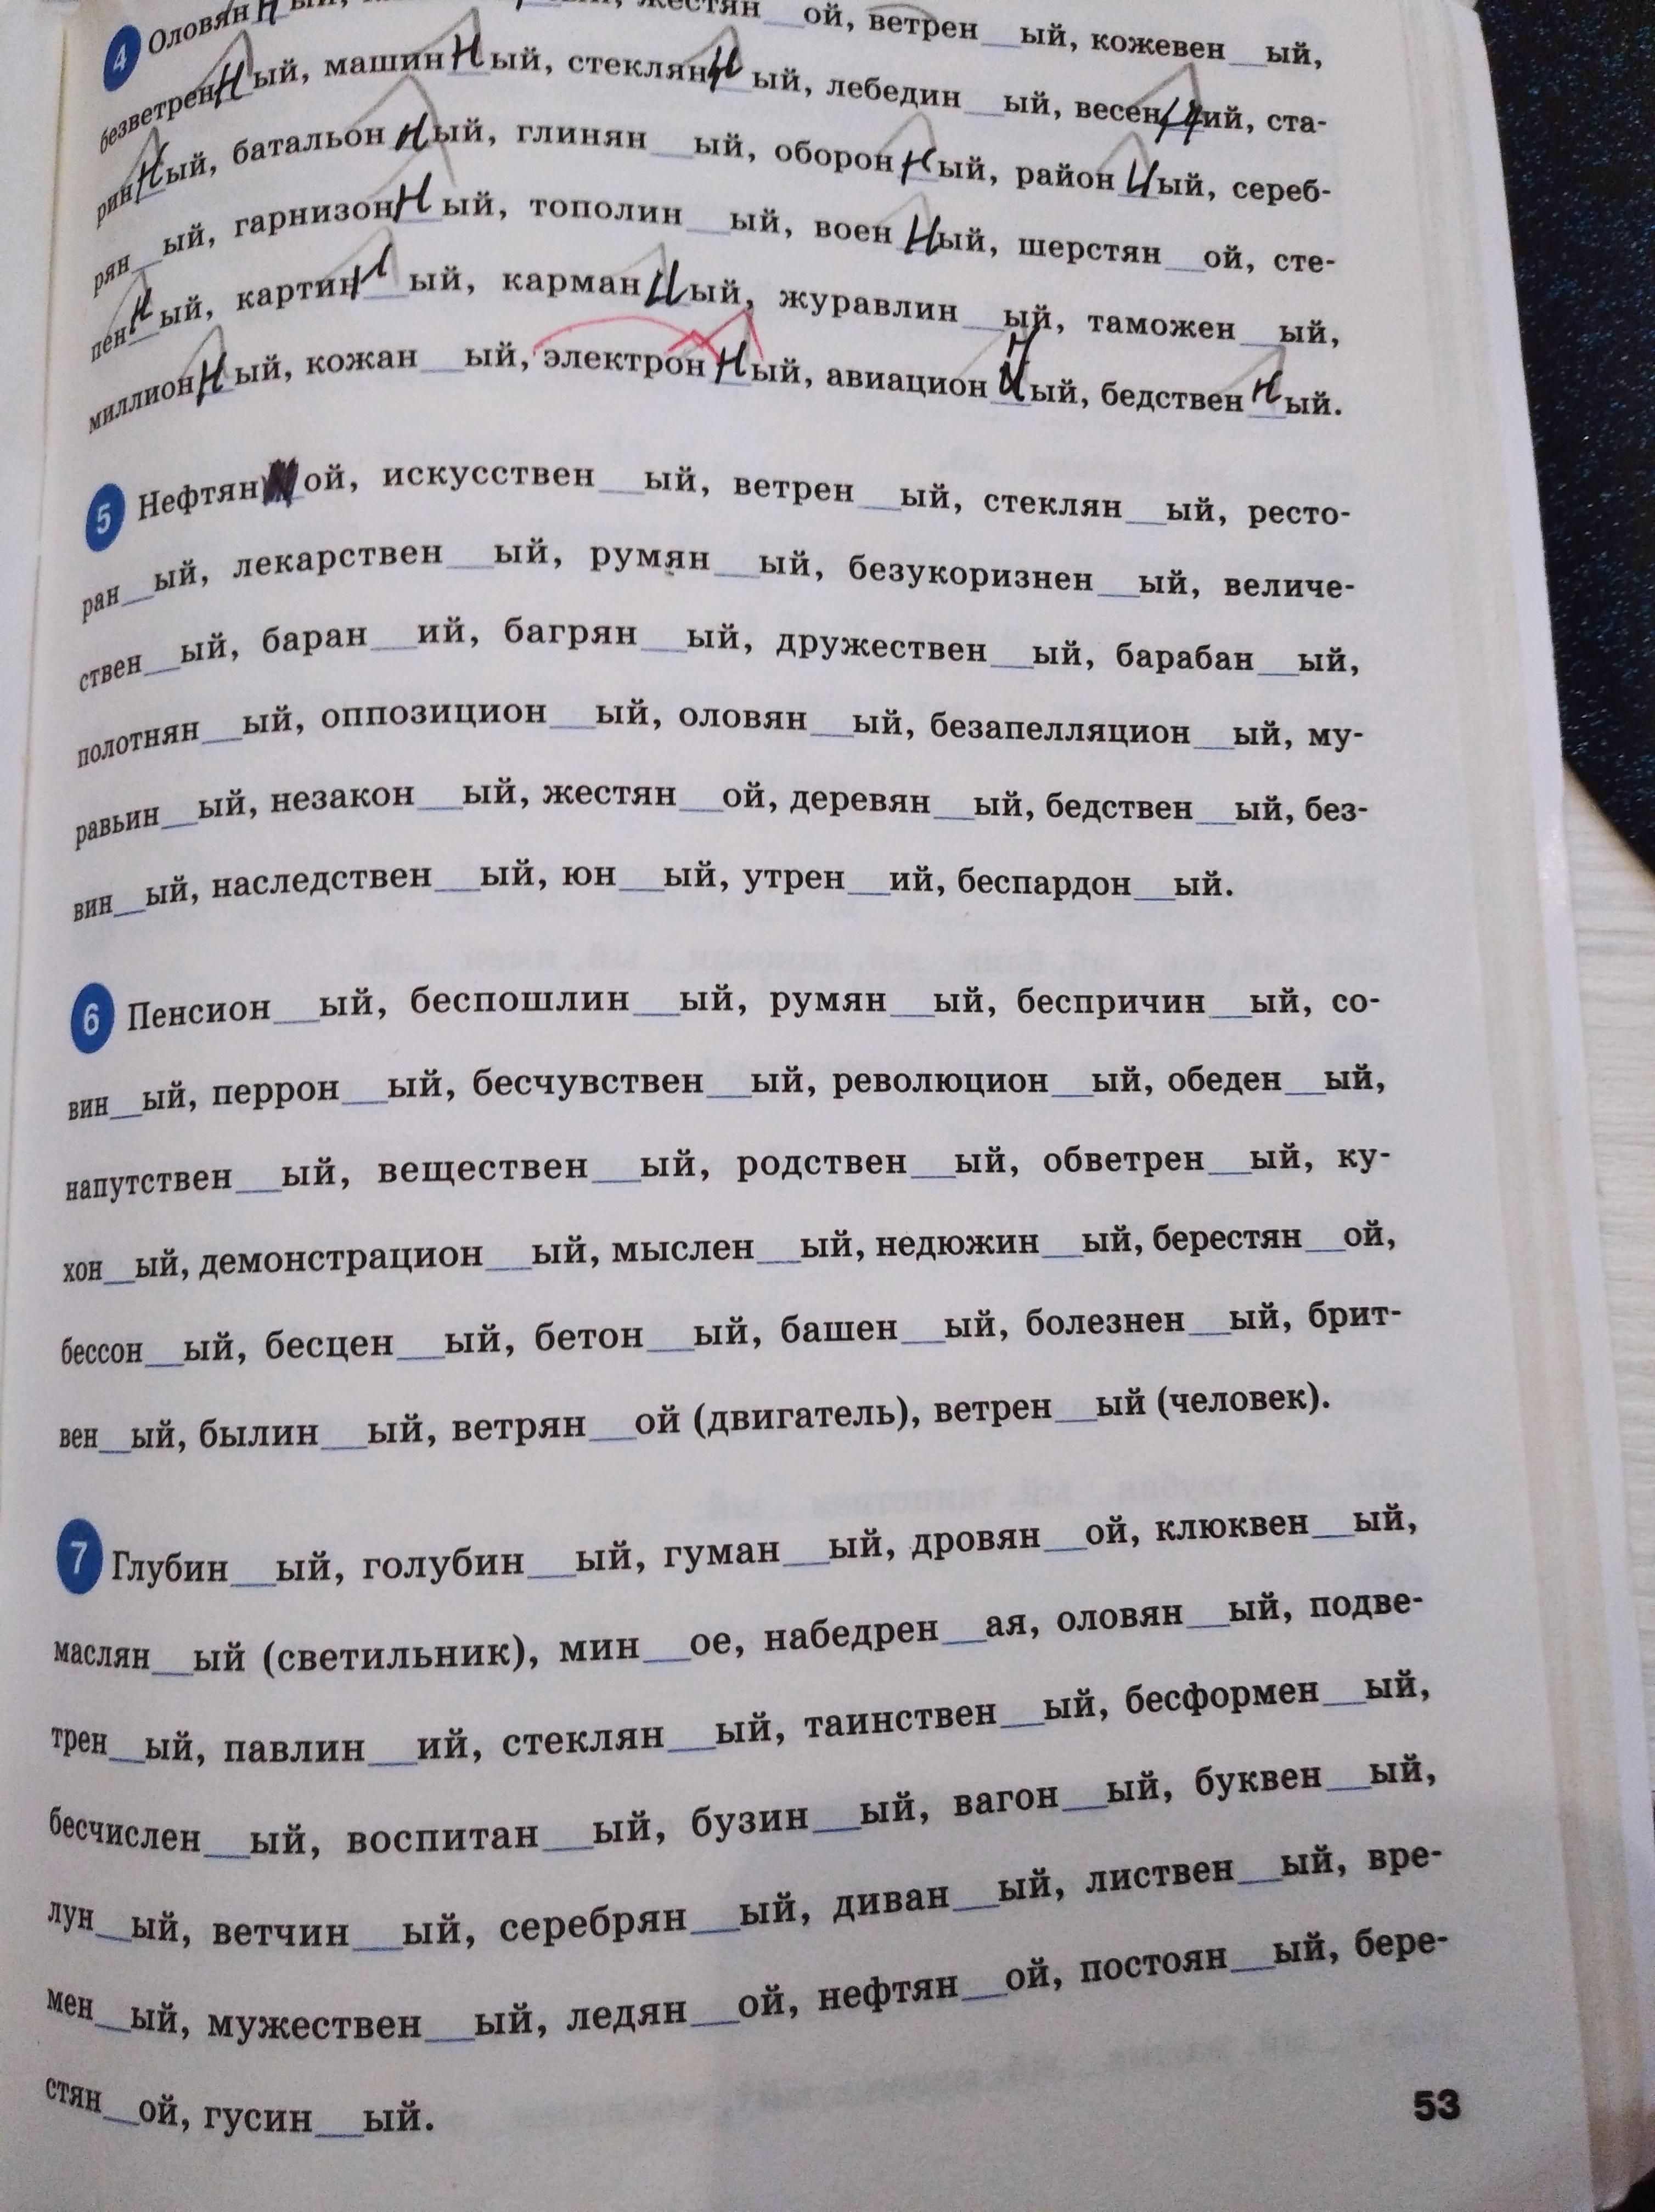 4 Оловян н ый, жестян__ой, ветрен__ый, кожевен__ый,
безветрен н ый, машин н ый, стеклян н ый, лебедин__ый, весен н ий, ста-
рин н ый, батальон н ый, глинян__ый, оборон н ый, район н ый, сереб-
рян__ый, гарнизон н ый, тополин__ый, воен н ый, шерстян__ой, сте-
пен н ый, картин н ый, карман н ый, журавлин__ый, таможен__ый,
миллион н ый, кожан__ый, электрон н ый, авиацион н ый, бедствен н ый.
5 Нефтян__ой, искусствен__ый, ветрен__ый, стеклян__ый, ресто-
ран__ый, лекарствен__ый, румян__ый, безукоризнен__ый, величе-
ствен__ый, баран__ий, багрян__ый, дружествен__ый, барабан__ый,
полотнян__ый, оппозицион__ый, оловян__ый, безапелляцион__ый, му-
равьин__ый, незакон__ый, жестян__ой, деревян__ый, бедствен__ый, без-
вин__ый, наследствен__ый, юн__ый, утрен__ий, беспардон__ый.
6 Пенсион__ый, беспошлин__ый, румян__ый, беспричин__ый, со-
вин__ый, перрон__ый, бесчувствен__ый, революцион__ый, обеден__ый,
напутствен__ый, веществен__ый, родствен__ый, обветрен__ый, ку-
хон__ый, демонстрацион__ый, мыслен__ый, недюжин__ый, берестян__ой,
бессон__ый, бесцен__ый, бетон__ый, башен__ый, болезнен__ый, брит-
вен__ый, былин__ый, ветрян__ой (двигатель), ветрен__ый (человек).
7 Глубин__ый, голубин__ый, гуман__ый, дровян__ой, клюквен__ый,
маслян__ый (светильник), мин__ое, набедрен__ая, оловян__ый, подве-
трен__ый, павлин__ий, стеклян__ый, таинствен__ый, бесформен__ый,
бесчислен__ый, воспитан__ый, бузин__ый, вагон__ый, буквен__ый,
лун__ый, ветчин__ый, серебрян__ый, диван__ый, листвен__ый, вре-
мен__ый, мужествен__ый, ледян__ой, нефтян__ой, постоян__ый, бере-
стян__ой, гусин__ый.
53